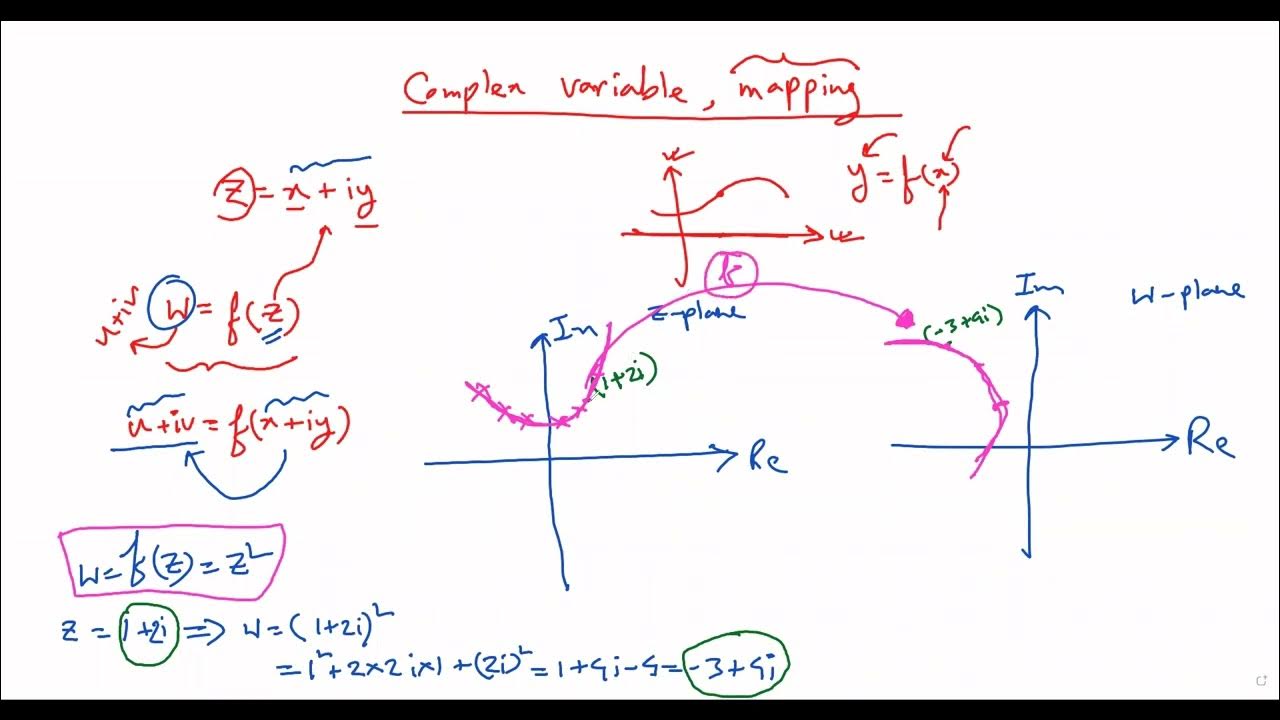 Complex variable, mapping
z = x + iy
y = f(x)
w = f(z)
u+iv
u+iv = f(x+iy)
f
z-plane
Im
(1+2i)
Re
Im
w-plane
(-3+4i)
Re
w = f(z) = z²
z = 1+2i ⇒ w = (1+2i)²
= 1² + 2×2i×1 + (2i)² = 1+4i-4 = -3+4i